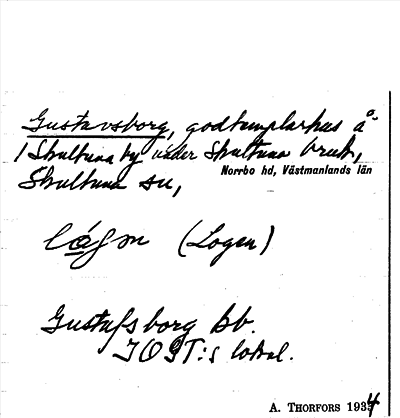 Gustavsborg, godtemplarhus å
1 Skultuna by under Skultuna bruk,
Norrbo hd, Västmanlands län
Skultuna sn,
lågən (Logen)
Gustafsborg bb.
IOGT:s lokal.
A. THORFORS 1934